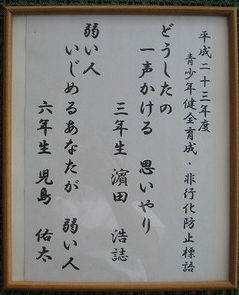 平成二十三年度
青少年健全育成・非行化防止標語
どうしたの
一声かける 思いやり
三年生 濵田 浩誌
弱い人
いじめるあなたが 弱い人
六年生 児島 佑太